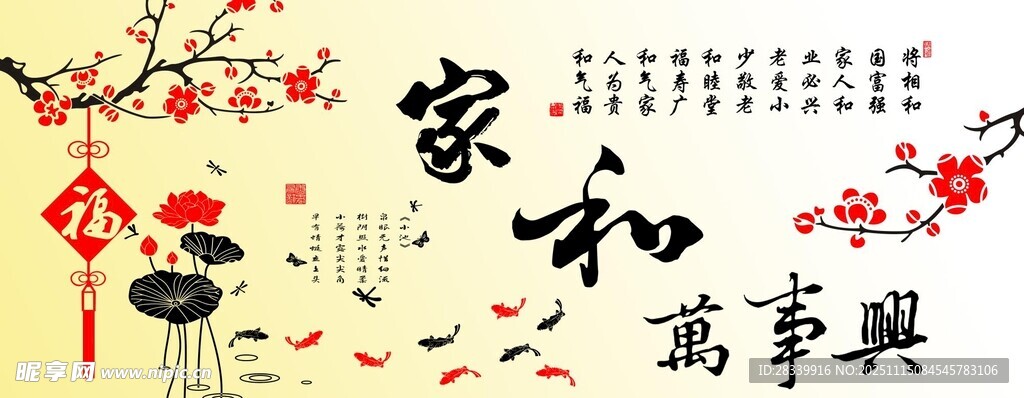 家和萬事興
将相和
国富强
家人和
业必兴
老爱小
少敬老
和睦堂
福寿广
和气家
人为贵
和气福
福
《小池》
泉眼无声惜细流
树阴照水爱晴柔
小荷才露尖尖角
早有蜻蜓立上头
昵享网 www.nipic.cn
ID:28339916 NO:20251115084545783106